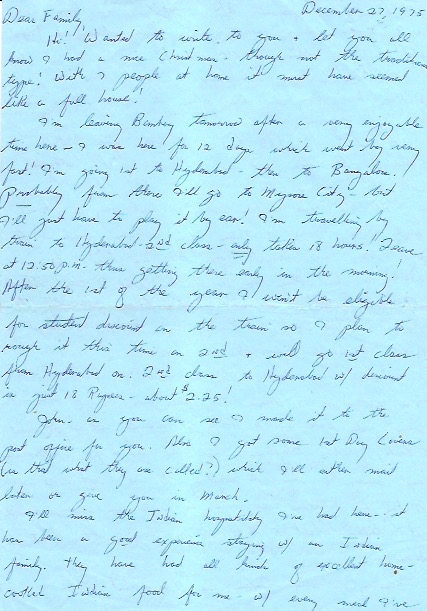 December 27, 1975
Dear Family,
Hi! Wanted to write to you & let you all
know I had a nice Christmas - though not the traditional
type! With 7 people at home it must have seemed
like a full house!
I'm leaving Bombay tomorrow after a very enjoyable
time here - I was here for 12 days which went by very
fast! I'm going 1st to Hyderabad - then to Bangalore.
Probably from there I'll go to Mysore City - but
I'll just have to play it by ear! I'm travelling by
train to Hyderabad - 2nd class - only takes 18 hours! Leave
at 12:50 p.m. thus getting there early in the morning!
After the 1st of the year I won't be eligible
for student discount on the train so I plan to
rough it this time on 2nd & will go 1st class
from Hyderabad on. 2nd class to Hyderabad w/ discount
is just 18 Rupees - about $2.25!
John - as you can see I made it to the
post office for you. Also I got some 1st Day Covers
(is that what they are called?) which I'll either mail
later or give you in March.
I'll miss the Indian hospitality I've had here - it
has been a good experience staying w/ an Indian
family. They have had all kinds of excellent home-
cooked Indian food for me - w/ every meal I've